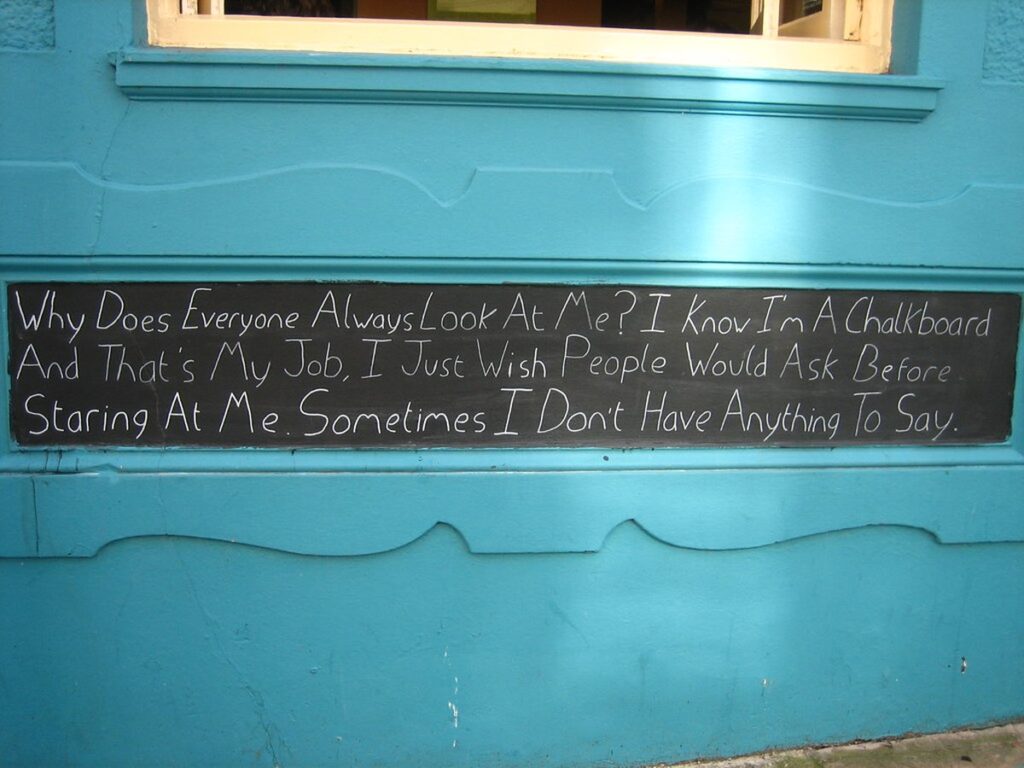 Why Does Everyone Always Look At Me? I Know I'm A Chalkboard
And That's My Job, I Just Wish People Would Ask Before
Staring At Me. Sometimes I Don't Have Anything To Say.